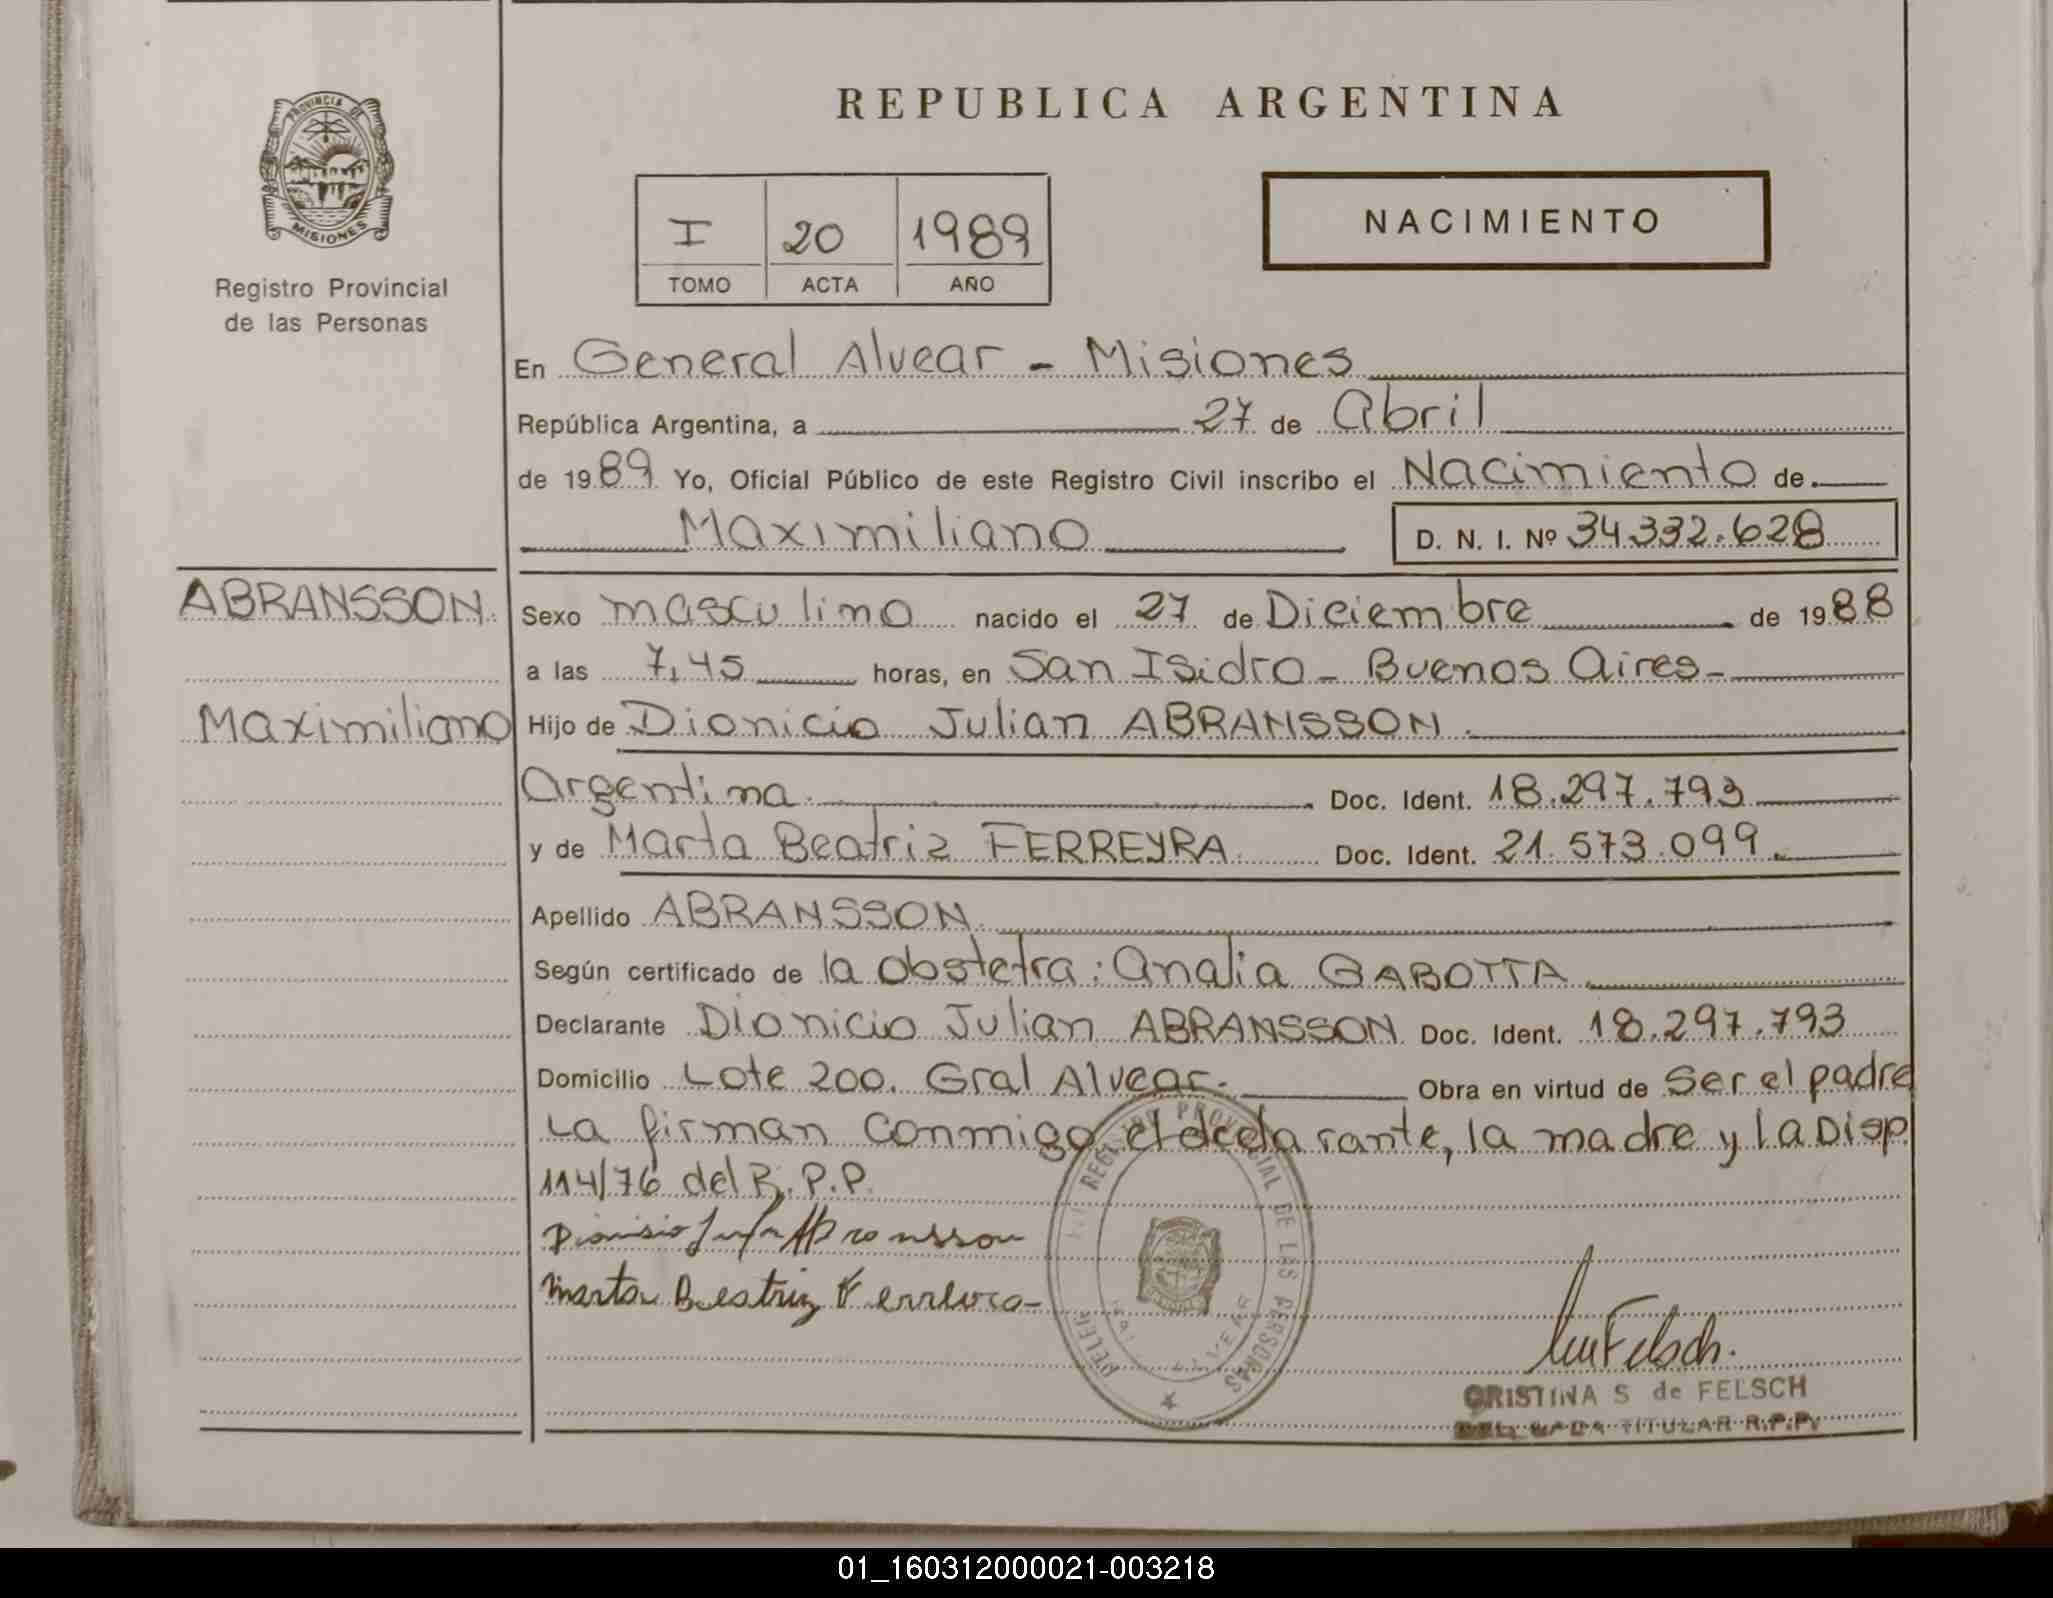 PROVINCIA DE
MISIONES
Registro Provincial
de las Personas
REPUBLICA ARGENTINA
I 20 1989
TOMO ACTA AÑO
NACIMIENTO
En General Alvear - Misiones
República Argentina, a 27 de Abril
de 1989 Yo, Oficial Público de este Registro Civil inscribo el Nacimiento de
Maximiliano D. N. I. Nº 34.332.628
ABRANSSON.
Maximiliano
Sexo masculino nacido el 27 de Diciembre de 1988
a las 7,45 horas, en San Isidro - Buenos Aires -
Hijo de Dionicio Julian ABRANSSON.
Argentina. Doc. Ident. 18.297.793
y de Marta Beatriz FERREYRA. Doc. Ident. 21.573.099.
Apellido ABRANSSON.
Según certificado de la obstetra: Analia GABOTTA
Declarante Dionicio Julian ABRANSSON Doc. Ident. 18.297.793
Domicilio Lote 200. Gral Alvear. Obra en virtud de Ser el padre
La firman conmigo el declarante, la madre y la Disp.
114/76 del R.P.P.
Marta Beatriz Ferreyra
REGISTRO PROVINCIAL DE LAS PERSONAS
ALVEAR
Felsch.
CRISTINA S de FELSCH
DELEGADA TITULAR R.P.P.
01_160312000021-003218